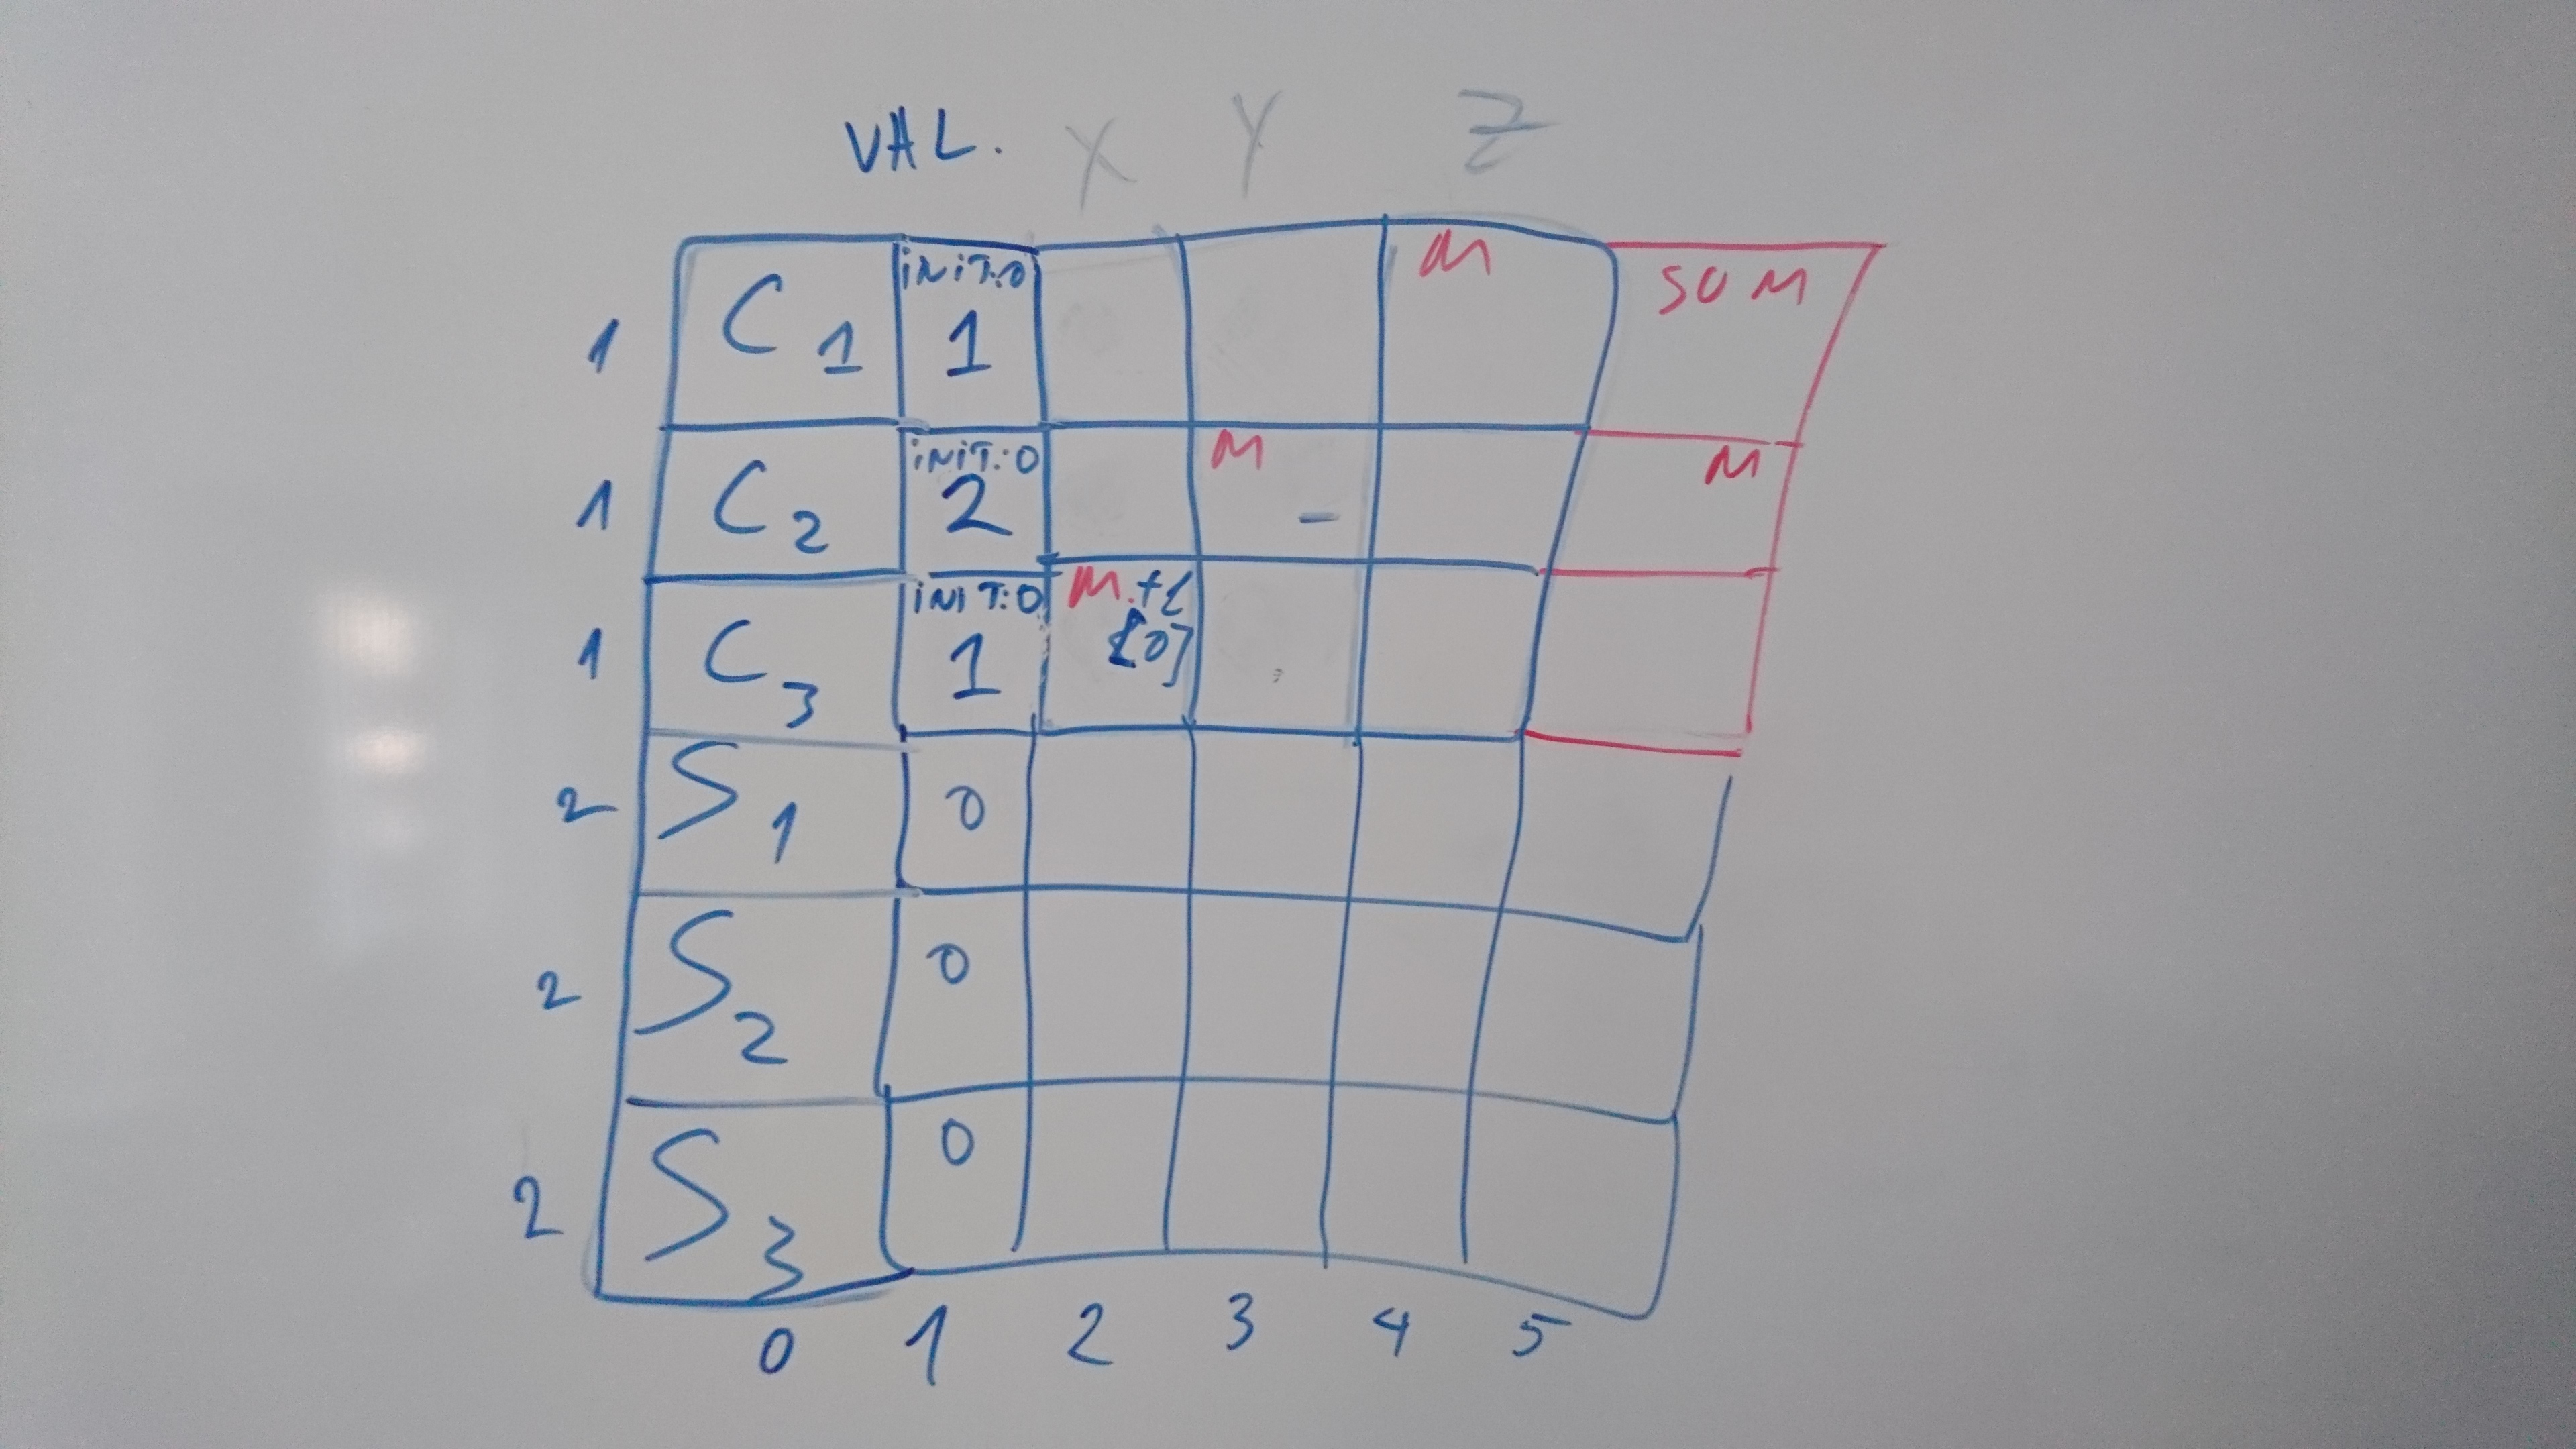 VAL. X Y Z
1 C1 INIT:0 1 M SOM
1 C2 INIT.:0 2 M - M
1 C3 INIT:0 1 M
2 S1 0
2 S2 0
2 S3 0
0 1 2 3 4 5